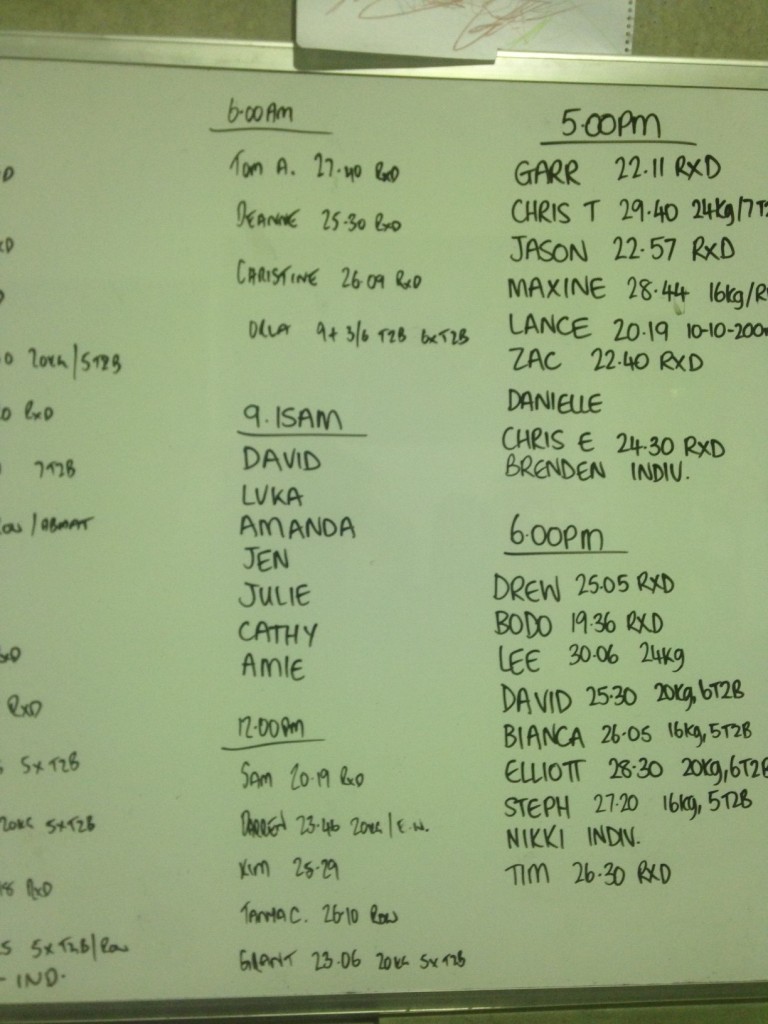 20KG/5T2B
RXD
7T2B
RXD
5xT2B
20KG 5xT2B
RXD
5xT2B/Row
- IND.
6.00AM
Tom A. 27.40 RXD
DEANNE 25.30 RXD
CHRISTINE 26.09 RXD
ORLA 9+3/6 T2B 6xT2B
9.15AM
DAVID
LUKA
AMANDA
JEN
JULIE
CATHY
AMIE
12.00PM
SAM 20.19 RXD
DARREN 23.46 20KG/E.N.
KIM 25.29
TANYA C. 26.10 Row
GRANT 23.06 20KG 5xT2B
5.00PM
GARR 22.11 RXD
CHRIS T 29.40 24Kg/7T2
JASON 22.57 RXD
MAXINE 28.44 16Kg/R
LANCE 20.19 10-10-200m
ZAC 22.40 RXD
DANIELLE
CHRIS E 24.30 RXD
BRENDEN INDIV.
6.00PM
DREW 25.05 RXD
BODO 19.36 RXD
LEE 30.06 24Kg
DAVID 25.30 20Kg, 6T2B
BIANCA 26.05 16Kg, 5T2B
ELLIOTT 28.30 20Kg, 6T2B
STEPH 27.20 16Kg, 5T2B
NIKKI INDIV.
TIM 26.30 RXD